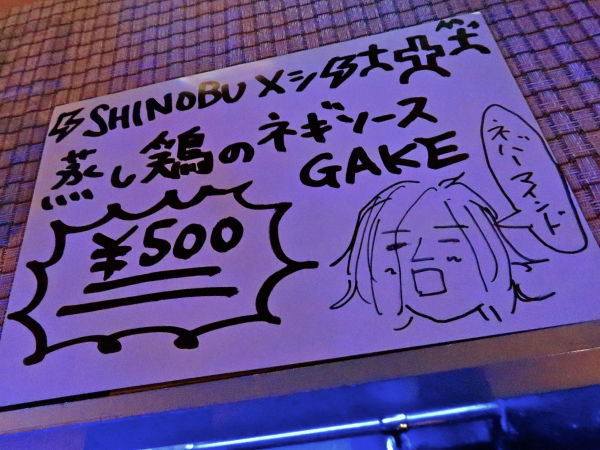 SHINOBU メシ
蒸し鶏のネギソース
GAKE
¥500
ネバーマインド